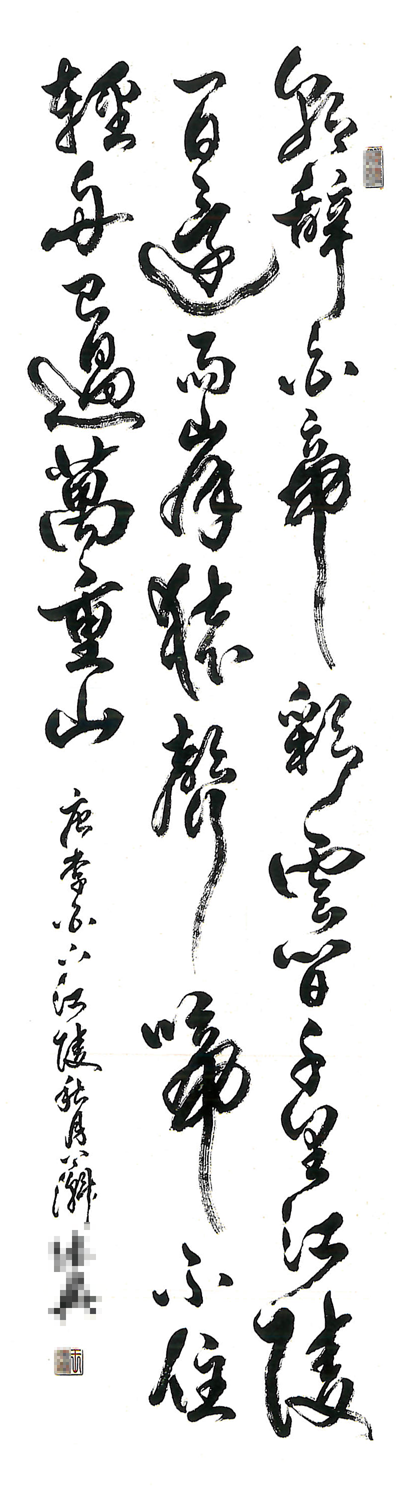 朝辞白帝彩雲間千里江陵
一日還两岸猿聲啼不住
輕舟已過萬重山
唐李白下江陵秋月